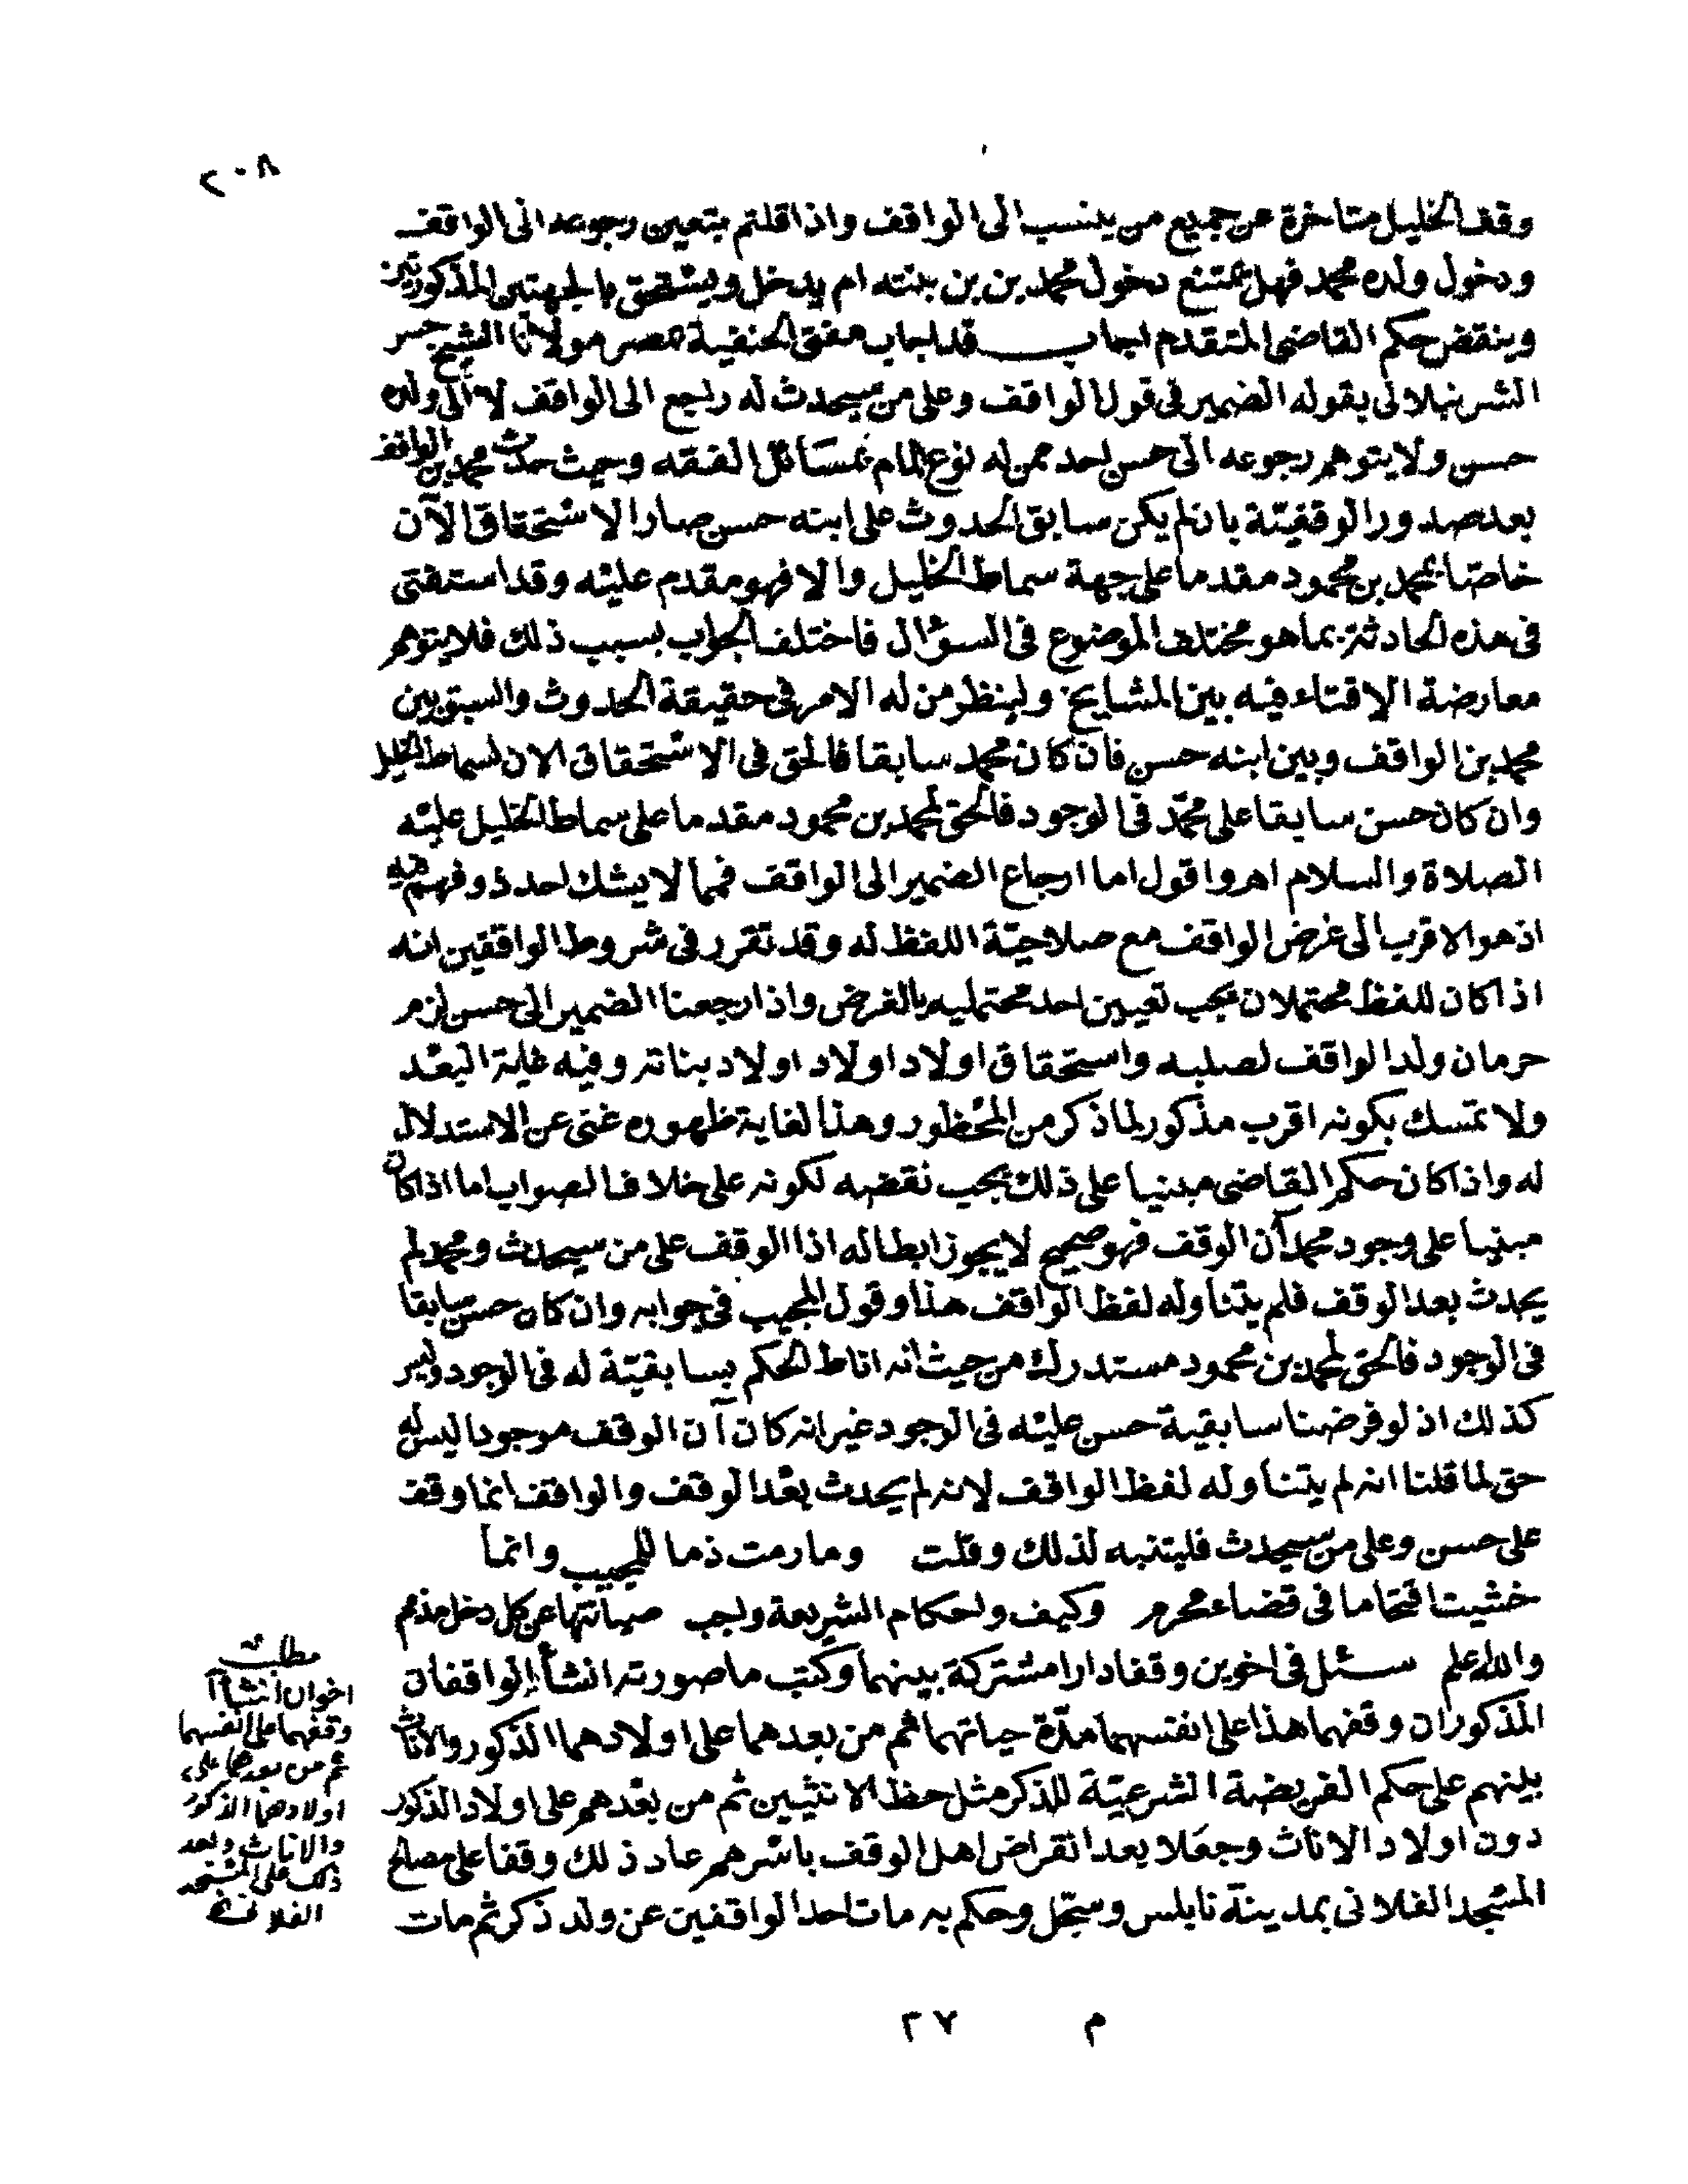 ٢٠٨
وقف الخليل متاخرة عن جميع من ينسب الى الواقف واذا قلتم بتعين رجوعه الى الواقف
ودخول ولده محمد فهل يمتنع دخول محمد بن بن بنته ام يدخل ويستحق بالجهتين المذكورتين
وينقض حكم القاضى المتقدم اجاب قد اجاب مفتى الحنفية بمصر مولانا الشيخ حسن
الشرنبلالى بقوله الضمير فى قول الواقف وعلى من سيحدث له راجع الى الواقف لا الى ولده
حسن ولا يتوهم رجوعه الى حسن احد ممن له نوع المام بمسائل الفقه وحيث حدث محمد بن الواقف
بعد صدور الوقفية بان لم يكن سابق الحدوث على ابنه حسن صار الاستحقاق الآن
خاصا بمحمد بن محمود مقدما على جهة سماط الخليل والا فهو مقدم عليه وقد استفتى
فى هذه الحادثة بما هو مختلف الموضوع فى السؤال فاختلف الجواب بسبب ذلك فلا يتوهم
معارضة الافتاء فيه بين المشايخ ولينظر من له الامر فى حقيقة الحدوث والسبق بين
محمد بن الواقف وبين ابنه حسن فان كان محمد سابقا فالحق فى الاستحقاق الان لسماط الخليل
وان كان حسن سابقا على محمد فى الوجود فالحق لمحمد بن محمود مقدما على سماط الخليل عليه
الصلاة والسلام اهـ واقول اما ارجاع الضمير الى الواقف فمما لا يشك احد ذو فهم فيه
اذ هو الاقرب الى غرض الواقف مع صلاحية اللفظ له وقد تقرر فى شروط الواقفين انه
اذا كان للفظ محتملان يجب تعيين احد محتمليه بالغرض واذا ارجعنا الضمير الى حسن لزم
حرمان ولد الواقف لصلبه واستحقاق اولاد اولاد اولاد بناته وفيه غاية البعد
ولا تمسك بكونه اقرب مذكور لما ذكر من المحظور وهذا لغاية ظهوره غنى عن الاستدلال
له واذا كان حكم القاضى مبنيا على ذلك يجب نقضه لكونه على خلاف الصواب اما اذا كان
مبنيا على وجود محمد آن الوقف فهو صحيح لا يجوز ابطاله اذا الوقف على من سيحدث ومحمد لم
يحدث بعد الوقف فلم يتناوله لفظ الواقف هذا وقول المجيب فى جوابه وان كان حسن سابقا
فى الوجود فالحق لمحمد بن محمود مستدرك من حيث انه اناط الحكم بسابقية له فى الوجود وليس
كذلك اذ لو فرضنا سابقية حسن عليه فى الوجود غير انه كان آن الوقف موجودا ليس له
حق لما قلنا انه لم يتناوله لفظ الواقف لانه لم يحدث بعد الوقف والواقف انما وقف
على حسن وعلى من سيحدث فليتنبه لذلك وقلت وما رمت ذما للمجيب وانما
خشيت اقتحاما فى قضاء محرم وكيف واحكام الشريعة واجب صيانتها عن كل دخل مذمم
والله اعلم سئل فى اخوين وقفا دارا مشتركة بينهما وكتب ما صورته انشأ الواقفان
المذكوران وقفهما هذا على انفسهما مدة حياتهما ثم من بعدهما على اولادهما الذكور والاناث
بينهم على حكم الفريضة الشرعية للذكر مثل حظ الانثيين ثم من بعدهم على اولاد الذكور
دون اولاد الاناث وجعلا بعد انقراض اهل الوقف باسرهم عاد ذلك وقفا على مصالح
المسجد الفلانى بمدينة نابلس وسجل وحكم به مات احد الواقفين عن ولد ذكر ثم مات
مطلب
اخوان انشاآ
وقفهما على انفسهما
ثم من بعدهما على
اولادهما الذكور
والاناث وبعد
ذلك على المسجد
الفلانى
م ٢٧